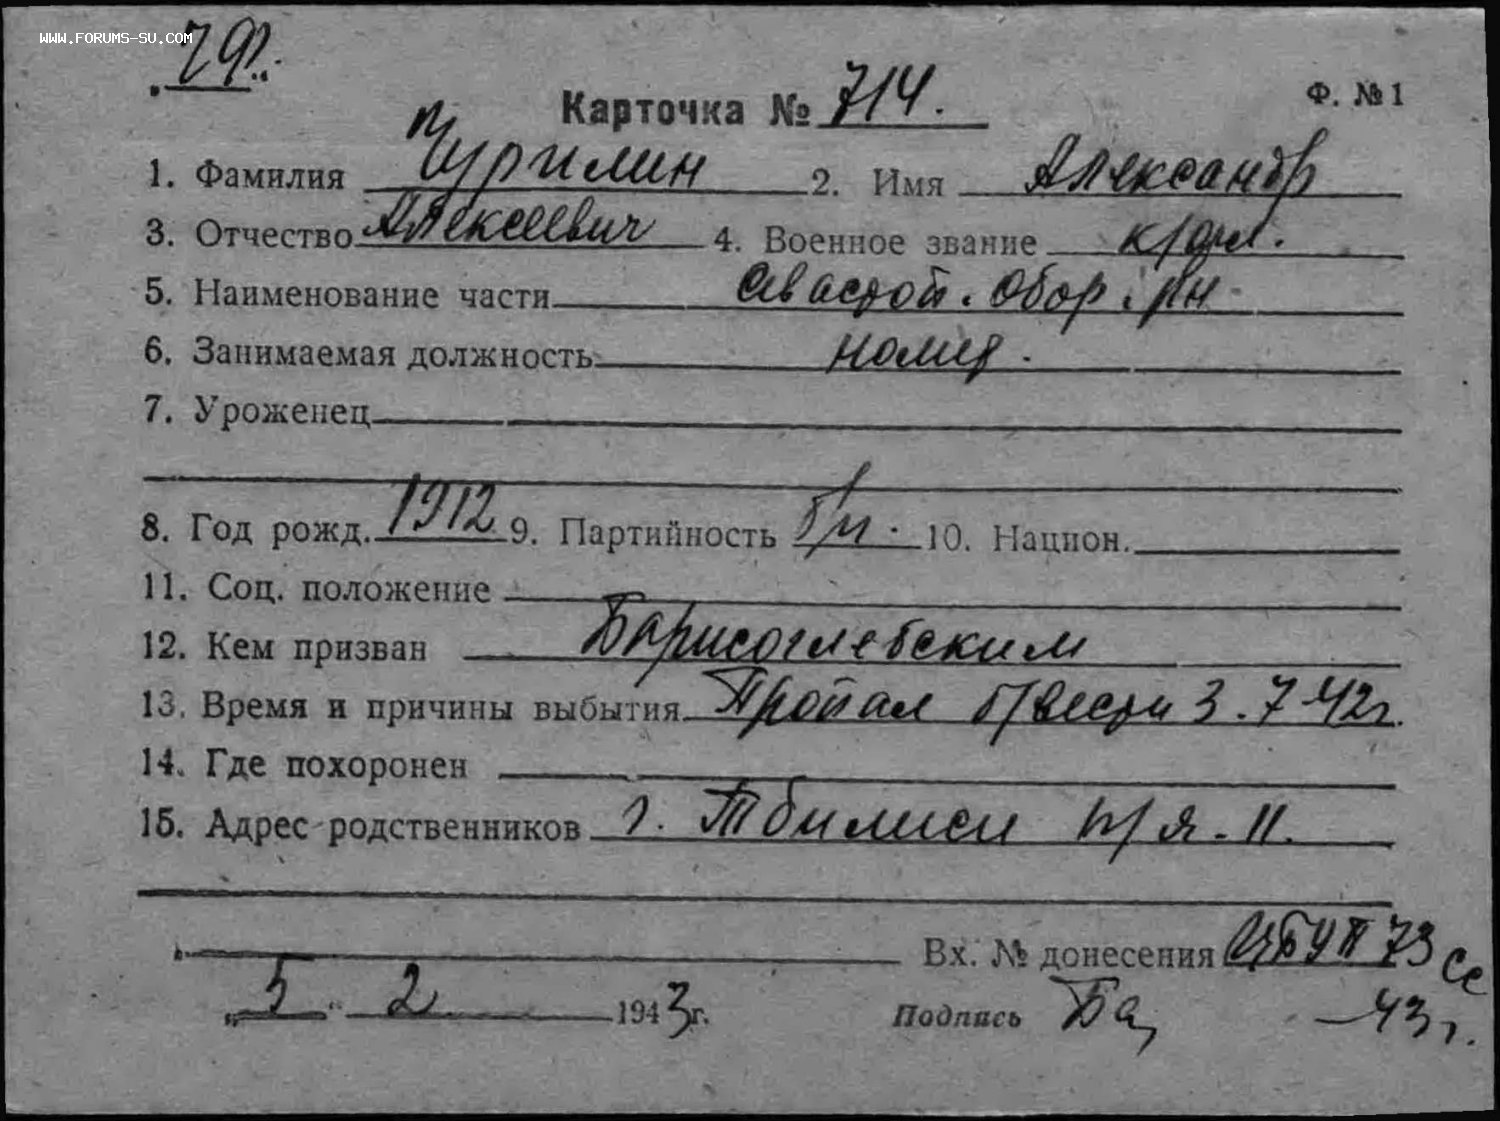 WWW.FORUMS-SU.COM
Карточка № 714.
Ф. № 1
1. Фамилия Чурилин 2. Имя Александр
3. Отчество Алексеевич 4. Военное звание к/фл.
5. Наименование части Севастоп. Обор. рн
6. Занимаемая должность номер.
7. Уроженец
8. Год рожд. 1912 9. Партийность б/п. 10. Национ.
11. Соц. положение
12. Кем призван Барисоглебским
13. Время и причины выбытия Пропал б/вести 3.7-42г.
14. Где похоронен
15. Адрес родственников г. Тбилиси п/я-11.
Вх. № донесения 73 сс
"5" 2 1943 г. Подпись -43 г.